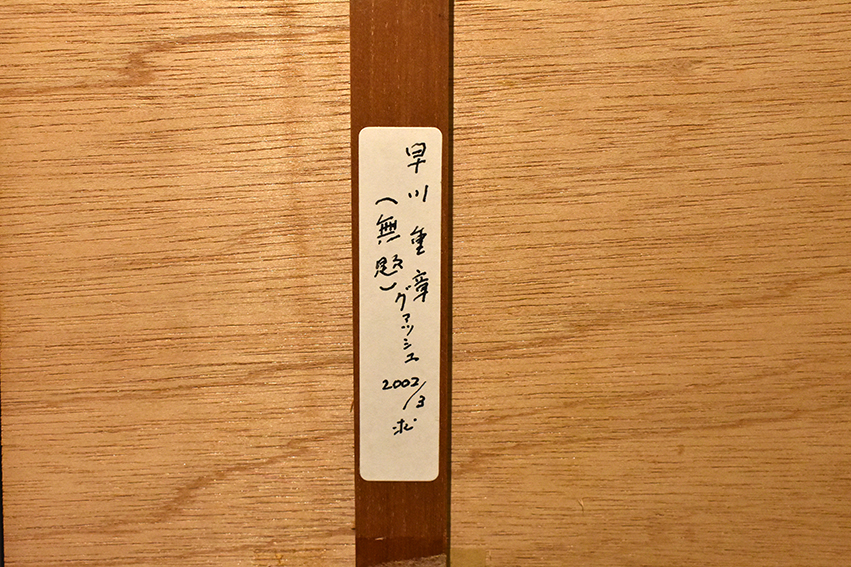 早川重章
(無題)
グァッシュ
2002/3
求